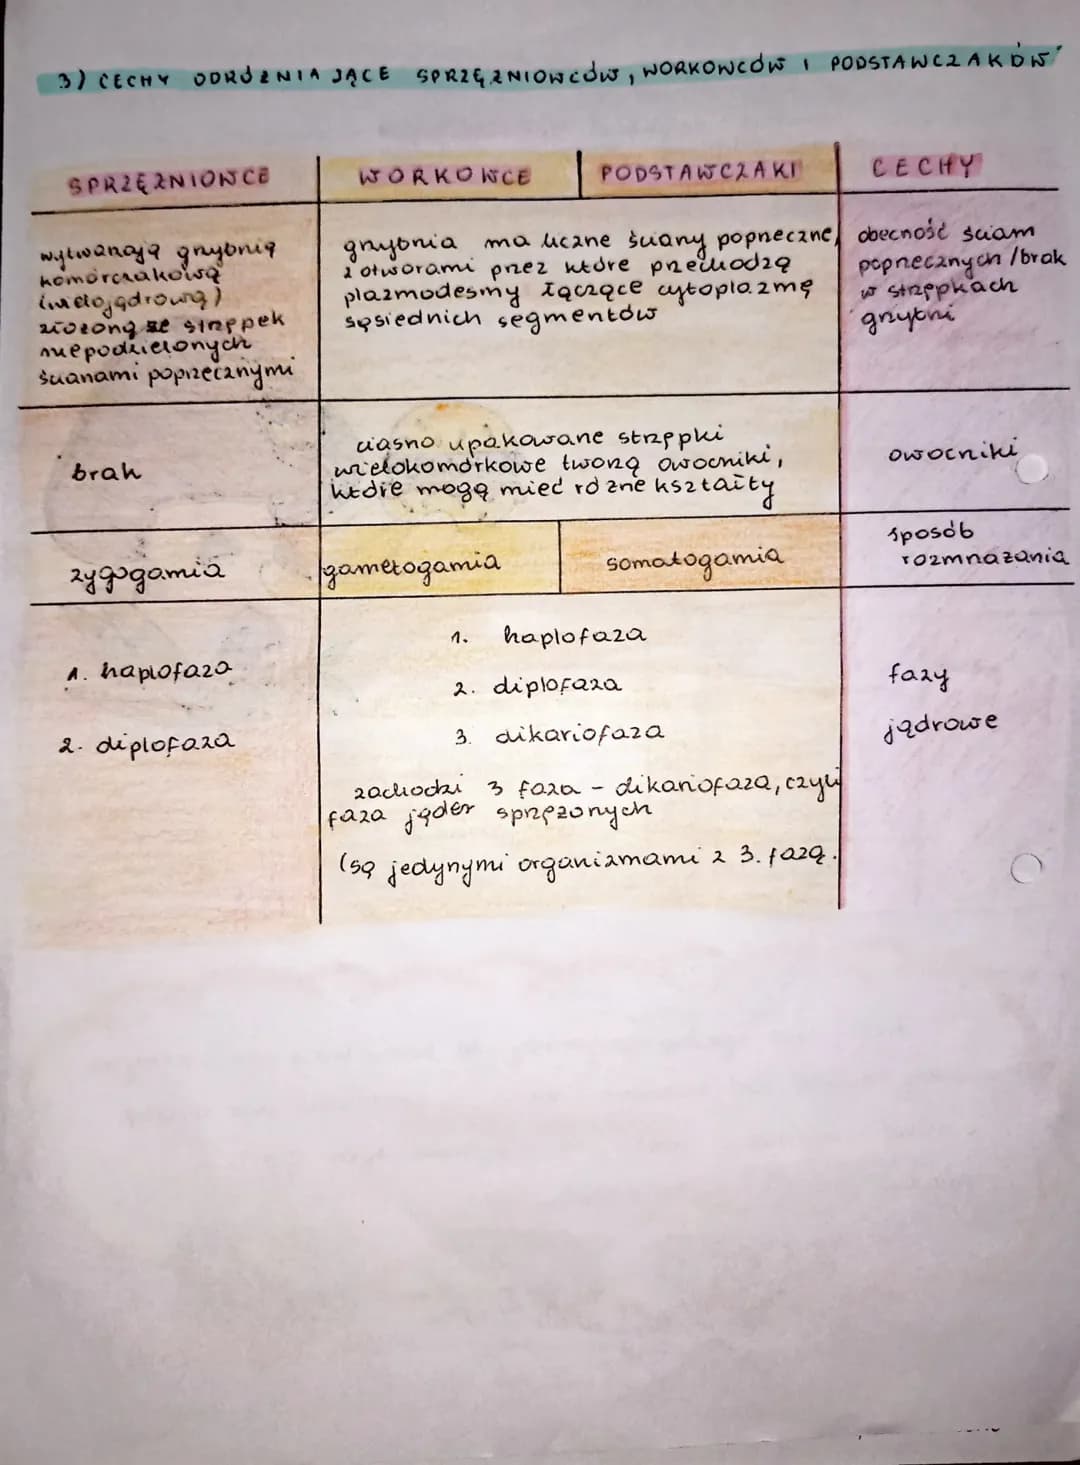 3) CECHY ODRÓŻNIAJĄCE SPRZĘŻNIOWCÓW, WORKOWCÓW I PODSTAWCZAKÓW
SPRZĘŻNIOWCE
WORKOWCE
PODSTAWCZAKI
CECHY
wytwarzają grzybnię
komórczakową
(wielojądrową)
złożoną ze strzępek
niepodzielonych
ścianami poprzecznymi
grzybnia ma liczne ściany poprzeczne,
z otworami przez które przechodzą
plazmodesmy łączące cytoplazmę
sąsiednich segmentów
obecność ścian
poprzecznych / brak
w strzępkach
grzybni
brak
ciasno upakowane strzępki
wielokomórkowe tworzą owocniki,
które mogą mieć różne kształty
owocniki
zygogamia
gametogamia
somatogamia
sposób
rozmnażania
1. haplofaza
2. diplofaza
1. haplofaza
2. diplofaza
3. dikariofaza
zachodzi 3 faza - dikariofaza, czyli
faza jąder sprzężonych
(są jedynymi organizmami z 3. fazą.
fazy
jądrowe